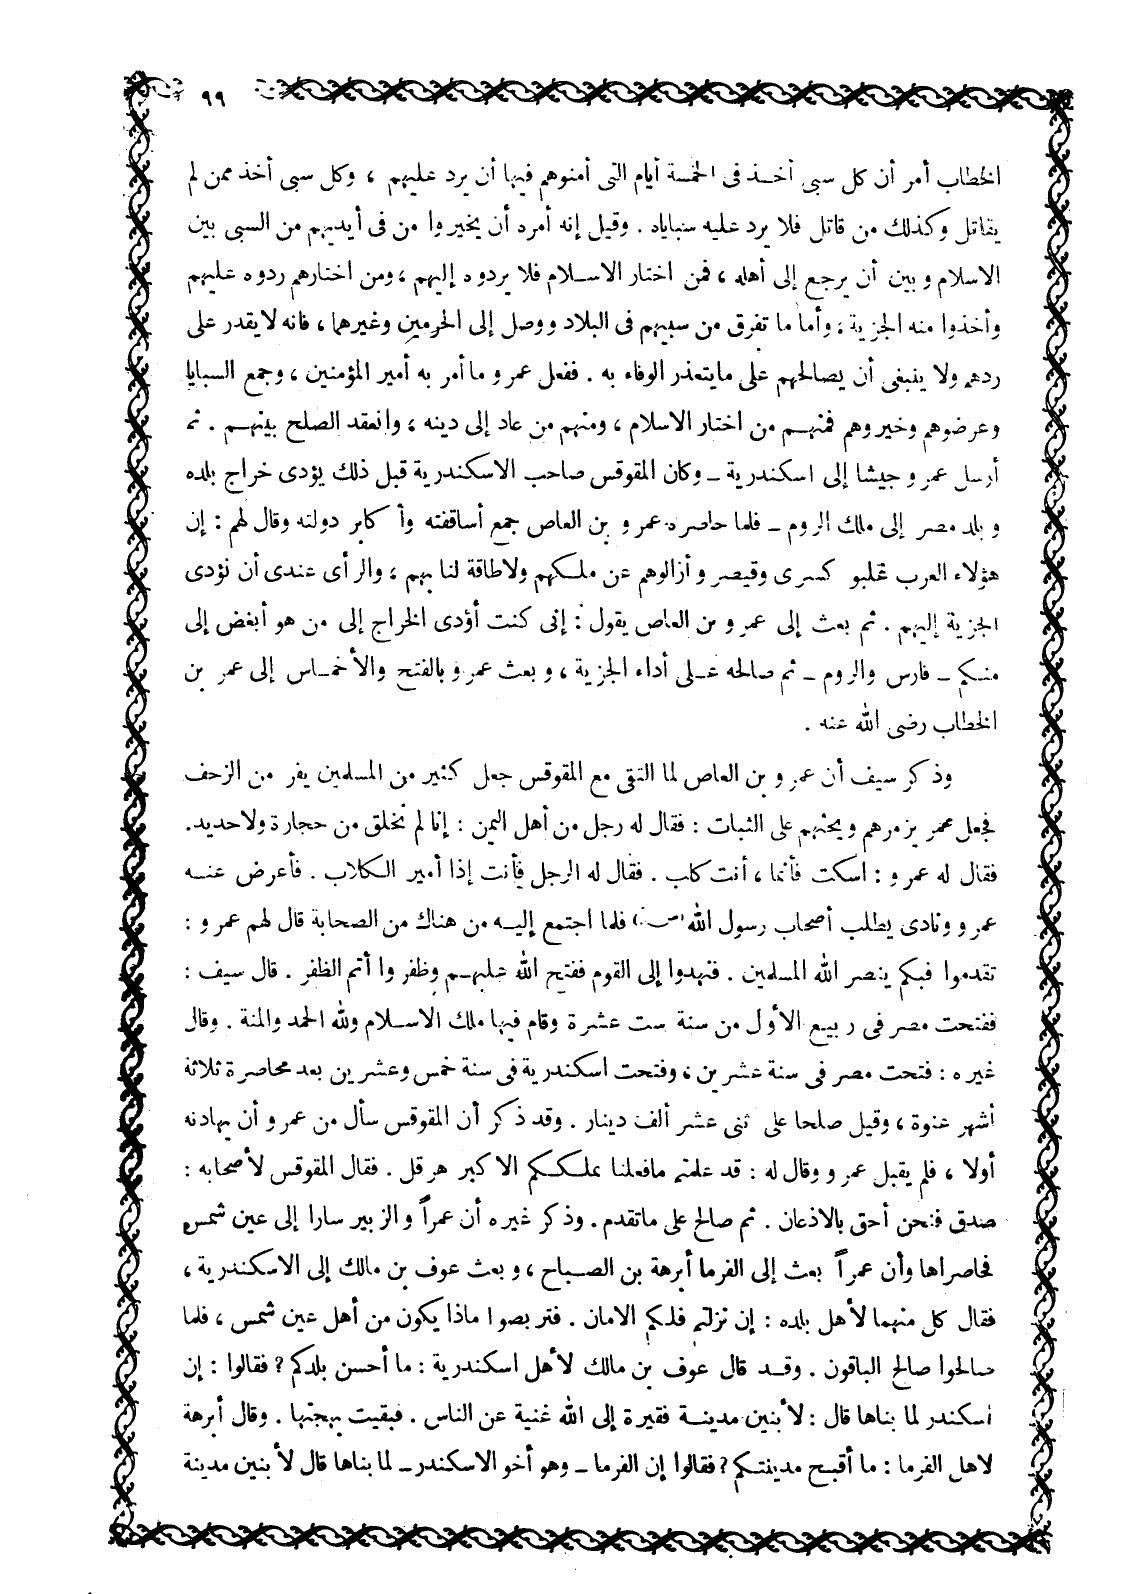 ٩٩
الخطاب أمر أن كل سبى أخـذ فى الخمسة أيام التى أمنوهم فيها أن يرد عليهم ، وكل سبى أخذ ممن لم
يقاتل وكذلك من قاتل فلا يرد عليه سباياه . وقيل إنه أمره أن يخيروا من فى أيديهم من السبى بين
الاسلام وبين أن يرجع إلى أهله ، فمن اختار الاسـلام فلا يردوه إليهم ، ومن اختارهم ردوه عليهم
وأخذوا منه الجزية ، وأما ما تفرق من سبيهم فى البلاد ووصل إلى الحرمين وغيرهما ، فانه لا يقدر على
ردهم ولا ينبغى أن يصالحهم على ما يتعذر الوفاء به . ففعل عمرو ما أمر به أمير المؤمنين ، وجمع السبايا
وعرضوهم وخيروهم فمنهـم من اختار الاسلام ، ومنهم من عاد إلى دينه ، وانعقد الصلح بينهـم . ثم
أرسل عمرو جيشا إلى اسكندرية ــ وكان المقوقس صاحب الاسكندرية قبل ذلك يؤدى خراج بلده
وبلد مصر إلى ملك الروم ــ فلما حاصره عمرو بن العاص جمع أساقفته وأكابر دولته وقال لهم : إن
هؤلاء العرب غلبو كسرى وقيصر وأزالوهم عن ملـكهم ولا طاقة لنا بهم ، والرأى عندى أن نؤدى
الجزية إليهم . ثم بعث إلى عمرو بن العاص يقول : إنى كنت أؤدى الخراج إلى من هو أبغض إلى
منـكم ــ فارس والروم ــ ثم صالحه عـلى أداء الجزية ، وبعث عمرو بالفتح والأخمـاس إلى عمر بن
الخطاب رضى الله عنه .
وذكر سيف أن عمرو بن العاص لما التقى مع المقوقس جعل كثير من المسلمين يفر من الزحف
فجعل عمر يزمرهم ويحثهم على الثبات : فقال له رجل من أهل اليمن : إنا لم نخلق من حجارة ولا حديد.
فقال له عمرو : اسكت فأنما ، أنت كلب . فقال له الرجل فأنت إذا أمير الـكلاب . فأعرض عنـه
عمرو ونادى يطلب أصحاب رسول الله فلما اجتمع إليـه من هناك من الصحابة قال لهم عمرو :
تقدموا فبكم ينصر الله المسلمين . فنهدوا إلى القوم ففتح الله عليهـم وظفروا أتم الظفر . قال سيف :
ففتحت مصر فى ربيع الأول من سنة ست عشرة وقام فيها ملك الاسـلام ولله الحمد والمنة . وقال
غيره : فتحت مصر فى سنة عشرين ، وفتحت اسكندرية فى سنة خمس وعشرين بعد محاصرة ثلاثة
أشهر عنوة ، وقيل صلحا على ثنى عشر ألف دينار . وقد ذكر أن المقوقس سأل من عمرو أن يهادنه
أولا ، فلم يقبل عمرو وقال له : قد علمتم ما فعلنا بملـككم الاكبر هرقل . فقال المقوقس لأصحابه :
صدق فنحن أحق بالاذعان . ثم صالح على ما تقدم . وذكر غيره أن عمراً والزبير سارا إلى عين شمس
فحاصراها وأن عمراً بعث إلى الفرما أبرهة بن الصـباح ، وبعث عوف بن مالك إلى الاسكندرية ،
فقال كل منهما لأهل بلده : إن نزلتم فلـكم الامان . فتربصوا ماذا يكون من أهل عين شمس ، فلما
صالحوا صالح الباقون . وقـد قال عوف بن مالك لأهل اسكندرية : ما أحسن بلدكم ? فقالوا : إن
اسكندر لما بناها قال : لأبنين مدينـة فقيرة إلى الله غنية عن الناس . فبقيت بهجتها . وقال أبرهة
لاهل الفرما : ما أقبـح مدينتـكم ? فقالوا إن الفرما ــ وهو أخو الاسكندر ــ لما بناها قال لأبنين مدينة